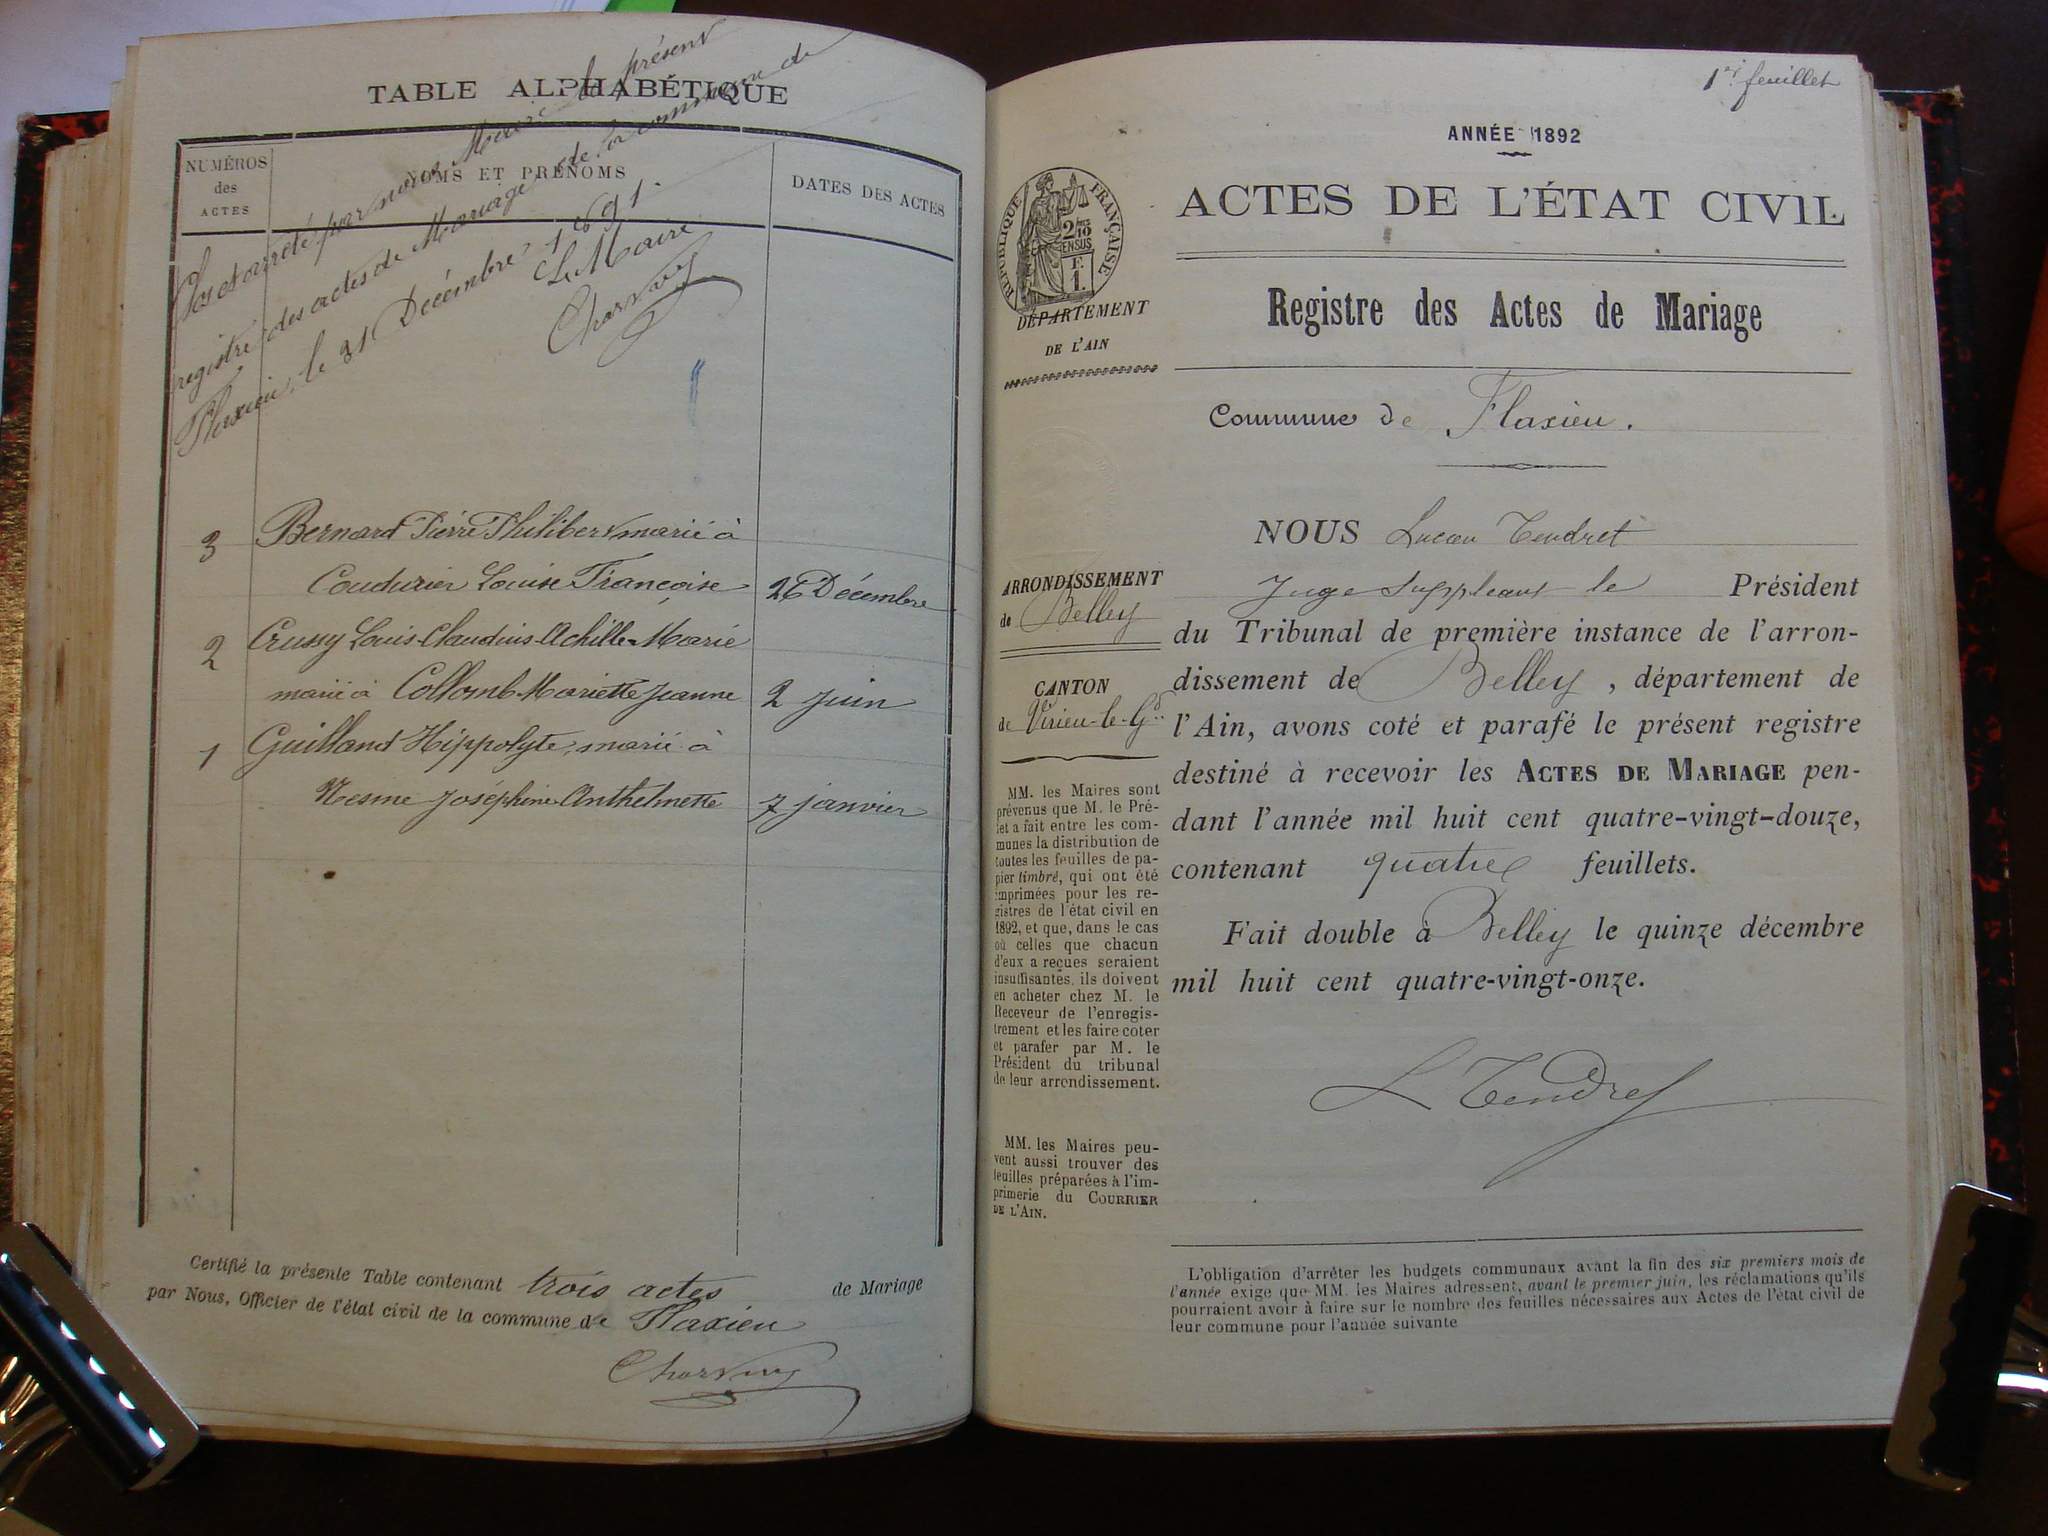 TABLE ALPHABÉTIQUE
NUMÉROS
des
ACTES
NOMS ET PRÉNOMS
DATES DES ACTES
Clos et arrêté par nous Maire le présent
registre des actes de Mariage de la commune de
Flaxieu, le 31 Décembre 1891.
Le Maire
Charvay
3 Bernard Pierre Philibert marié à
Coudurier Louise Françoise 26 Décembre
2 Crussy Louis-Claudius-Achille-Marie
marié à Collomb Mariette Jeanne 2 juin
1 Guilland Hippolyte, marié à
Nesme Joséphine Anthelmette 7 janvier
Certifié la présente Table contenant trois actes de Mariage
par Nous, Officier de l'état civil de la commune de Flaxieu
Charvay
1er feuillet
ANNÉE 1892
ACTES DE L'ÉTAT CIVIL
RÉPUBLIQUE FRANÇAISE
2/10 EN SUS
F.
1.
DÉPARTEMENT
DE L'AIN
Registre des Actes de Mariage
Commune de Flaxieu.
ARRONDISSEMENT
de Belley
CANTON
de Virieu-le-Gd
MM. les Maires sont
prévenus que M. le Pré-
fet a fait entre les com-
munes la distribution de
toutes les feuilles de pa-
pier timbré, qui ont été
imprimées pour les re-
gistres de l'état civil en
1892, et que, dans le cas
où celles que chacun
d'eux a reçues seraient
insuffisantes, ils doivent
en acheter chez M. le
Receveur de l'enregis-
trement et les faire coter
et parafer par M. le
Président du tribunal
de leur arrondissement.
MM. les Maires peu-
vent aussi trouver des
feuilles préparées à l'im-
primerie du COURRIER
DE L'AIN.
NOUS Lucien Tendret
Juge Suppléant le Président
du Tribunal de première instance de l'arron-
dissement de Belley, département de
l'Ain, avons coté et parafé le présent registre
destiné à recevoir les ACTES DE MARIAGE pen-
dant l'année mil huit cent quatre-vingt-douze,
contenant quatre feuillets.
Fait double à Belley le quinze décembre
mil huit cent quatre-vingt-onze.
L Tendret
L'obligation d'arrêter les budgets communaux avant la fin des six premiers mois de
l'année exige que MM. les Maires adressent, avant le premier juin, les réclamations qu'ils
pourraient avoir à faire sur le nombre des feuilles nécessaires aux Actes de l'état civil de
leur commune pour l'année suivante